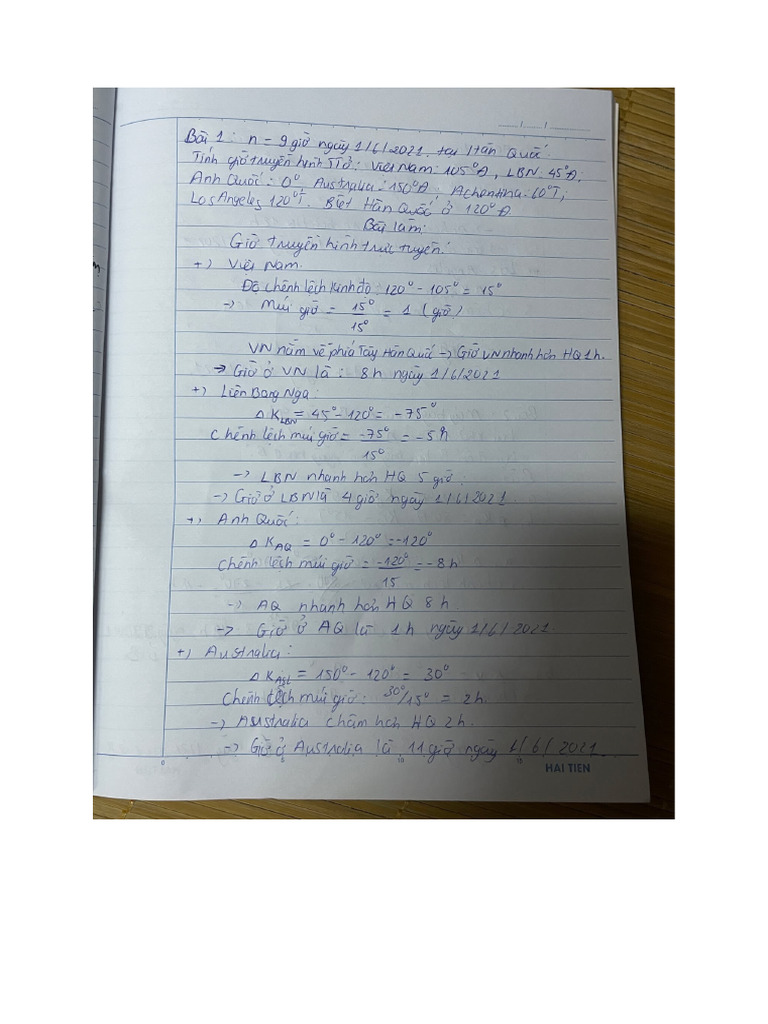 Bài 1: n = 9 giờ ngày 1/6/2021. tại Hàn Quốc.
Tính giờ truyền hình TT ở: Việt Nam: 105°Đ, LBN 45°Đ,
Anh Quốc: 0° Australia: 150°Đ, Achentina: 60°T;
Los Angeles 120°T. Biết Hàn Quốc ở 120°Đ
Bài làm:
Giờ truyền hình trực tuyến:
+) Việt Nam.
Độ chênh lệch kinh độ: 120° - 105° = 15°
-> Múi giờ = 15°/15° = 1 (giờ)
VN nằm về phía Tây Hàn Quốc -> Giờ VN nhanh hơn HQ 1h.
-> Giờ ở VN là: 8h ngày 1/6/2021
+) Liên Bang Nga:
Δ K LBN = 45° - 120° = -75°
Chênh lệch múi giờ = -75°/15° = -5h
-> LBN nhanh hơn HQ 5 giờ.
-> Giờ ở LBN là 4 giờ ngày 1/6/2021
+) Anh Quốc:
Δ K AQ = 0° - 120° = -120°
Chênh lệch múi giờ = -120°/15 = -8h
-> AQ nhanh hơn HQ 8h.
-> Giờ ở AQ là 1h ngày 1/6/2021.
+) Australia:
Δ K ASL = 150° - 120° = 30°
Chênh lệch múi giờ: 30°/15° = 2h.
-> Australia chậm hơn HQ 2h.
-> Giờ ở Australia là 11 giờ ngày 1/6/2021.
0 5 10 15
HAI TIEN